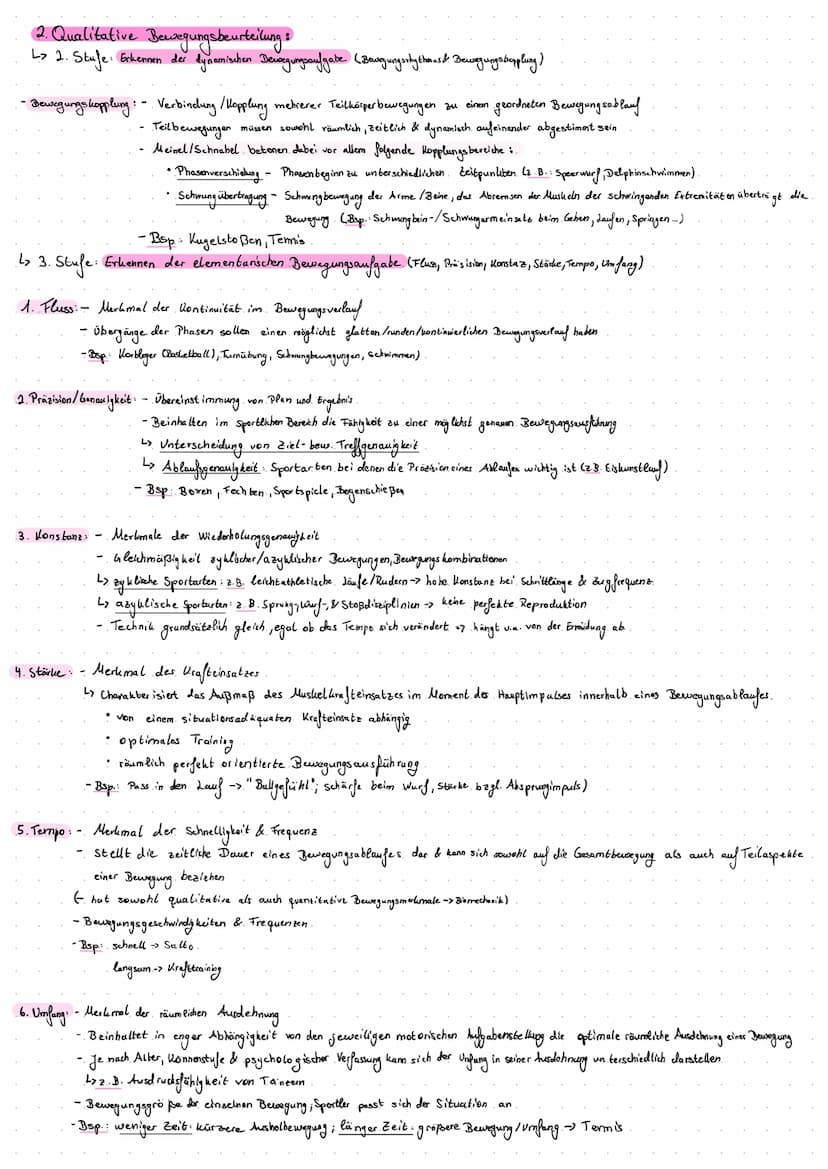 2. Qualitative Bewegungsbeurteilung:
↳ 2. Stufe: Erkennen der dynamischen Bewegungsaufgabe (Bewegungsrhythmus & Bewegungskopplung)
- Bewegungskopplung: - Verbindung/Kopplung mehrerer Teilkörperbewegungen zu einem geordneten Bewegungsablauf
- Teilbewegungen müssen sowohl räumlich, zeitlich & dynamisch aufeinander abgestimmt sein
- Meinel/Schnabel betonen dabei vor allem folgende Kopplungsbereiche:
• Phasenverschiebung - Phasenbeginn zu unterschiedlichen Zeitpunkten (z.B.: Speerwurf, Delphinschwimmen)
• Schwungübertragung - Schwungbewegung der Arme/Beine, das Abremsen der Muskeln der schwingenden Extremitäten überträgt die
Bewegung (Bsp.: Schwungbein-/Schwungarmeinsatz beim Gehen, Laufen, Springen...)
- Bsp.: Kugelstoßen, Tennis
↳ 3. Stufe: Erkennen der elementarischen Bewegungsaufgabe (Fluss, Präzision, Konstanz, Stärke, Tempo, Umfang)
1. Fluss: - Merkmal der Kontinuität im Bewegungsverlauf
- Übergänge der Phasen sollen einen möglichst glatten/runden/kontinuierlichen Bewegungsverlauf haben
- Bsp.: Korbleger (Basketball), Turnübung, Schwungbewegungen, Schwimmen)
2. Präzision/Genauigkeit: - Übereinstimmung von Plan und Ergebnis
- Beinhalten im sportlichen Bereich die Fähigkeit zu einer möglichst genauen Bewegungsausführung
↳ Unterscheidung von Ziel- bzw. Treffgenauigkeit
↳ Ablaufsgenauigkeit: Sportarten bei denen die Präzision eines Ablaufes wichtig ist (z.B. Eiskunstlauf)
- Bsp: Boxen, Fechten, Sportspiele, Bogenschießen
3. Konstanz: - Merkmale der Wiederholungsgenauigkeit
- Gleichmäßigkeit zyklischer/azyklischer Bewegungen, Bewegungskombinationen
↳ zyklische Sportarten: z.B. leichtathletische Läufe/Rudern → hohe Konstanz bei Schrittlänge & Zugfrequenz
↳ azyklische Sportarten: z.B. Sprung-, Wurf-, & Stoßdisziplinen → keine perfekte Reproduktion
- Technik grundsätzlich gleich, egal ob das Tempo sich verändert → hängt u.a. von der Ermüdung ab
4. Stärke: - Merkmal des Krafteinsatzes
↳ Charakterisiert das Außmaß des Muskelkrafteinsatzes im Moment des Hauptimpulses innerhalb eines Bewegungsablaufes.
• von einem situationsadäquaten Krafteinsatz abhängig
• optimales Training
• räumlich perfekt orientierte Bewegungsausführung
- Bsp.: Pass in den Lauf → "Ballgefühl"; schärfe beim Wurf, Stärke bzgl. Absprungimpuls)
5. Tempo: - Merkmal der Schnelligkeit & Frequenz
- stellt die zeitliche Dauer eines Bewegungsablaufes dar & kann sich sowohl auf die Gesamtbewegung als auch auf Teilaspekte
einer Bewegung beziehen
(→ hat sowohl qualitative als auch quantitative Bewegungsmerkmale → Biomechanik)
- Bewegungsgeschwindigkeiten & Frequenzen
- Bsp: schnell → Salto
langsam → Krafttraining
6. Umfang: - Merkmal der räumlichen Ausdehnung
- Beinhaltet in enger Abhängigkeit von den jeweiligen motorischen Aufgabenstellung die optimale räumliche Ausdehnung einer Bewegung
- Je nach Alter, Könnenstufe & psychologischer Verfassung kann sich der Umfang in seiner Ausdehnung unterschiedlich darstellen
↳ z.B. Ausdrucksfähigkeit von Tänzern
- Bewegungsgröße der einzelnen Bewegung, Sportler passt sich der Situation an
- Bsp.: weniger Zeit: kürzere Ausholbewegung; länger Zeit: größere Bewegung/Umfang → Tennis